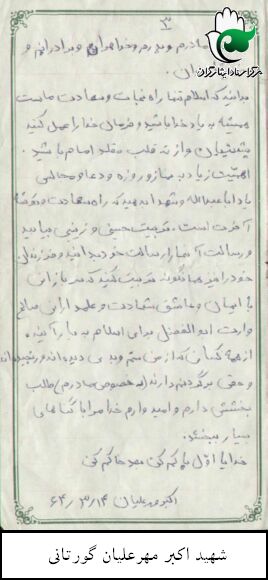 ۳
مرکز اسناد ایثارگران
مادرم و پدرم و خواهران و برادرانم و
بدانید که اسلام تنها راه نجات و سعادت ماست
همیشه به یاد خدا باشید و فرمان خدا را عمل کنید
پشتیبان و از ته قلب مقلد امام باشید.
اهمیت زیاد به نماز و روزه و دعا و مجالس
یاد اباعبدالله و شهدا بدهید که راه سعادت و توشه
آخرت است. تربیت حسینی و زینبی بیابید
و رسالت آنها را رسالت خود بدانید و فرزندان
خود را نیز همانگونه تربیت کنید که سربازانی
با ایمان و عاشق شهادت و علمدارانی صالح
وارث ابوالفضل برای اسلام به بار آیند.
از همه کسانی که از من ستم و بدی دیده‌اند و رنجیده‌اند
و حقی برگردنم دارند (به خصوص مادرم) طلب
بخشش دارم و امیدوارم خدا مرا با گناهای
بسیار ببخشد.
خدایا اول پاکم کن بعد خاکم کن
اکبر مهرعلیان ۶۴/۳/۱۴
شهید اکبر مهرعلیان گورتانی